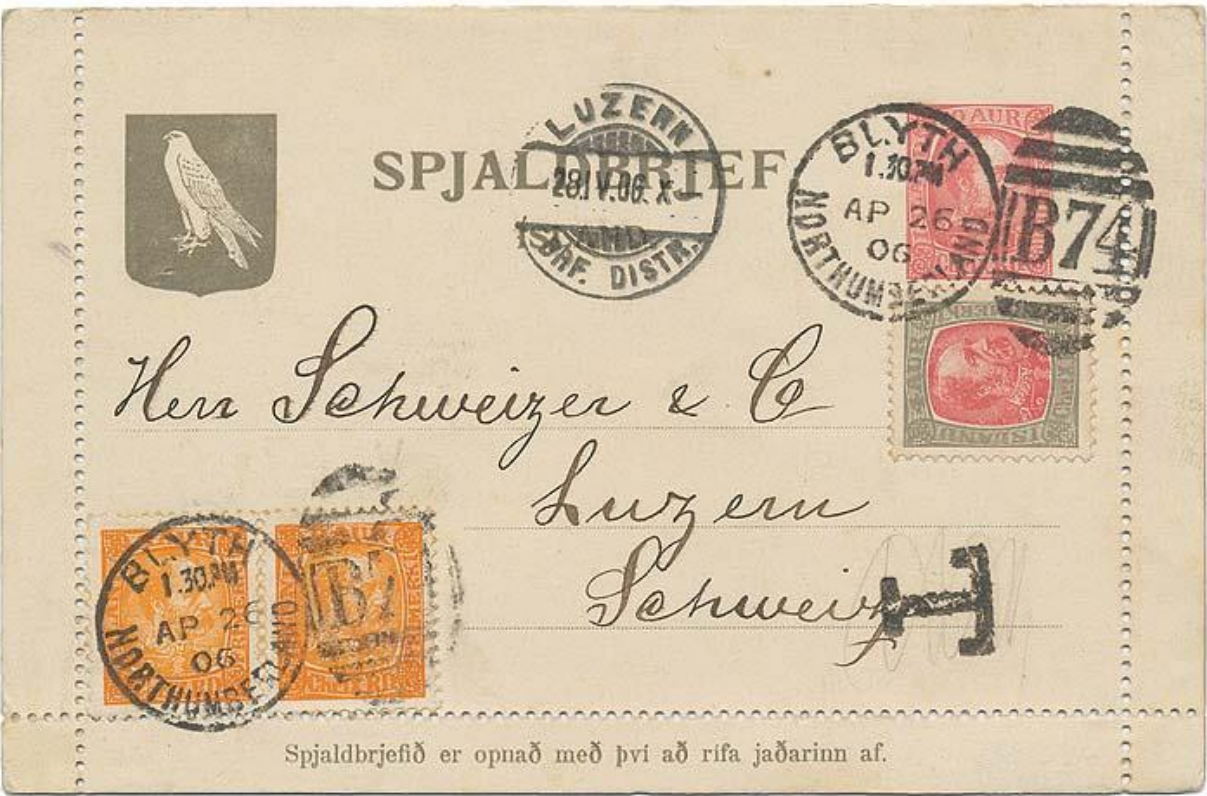 SPJALDBRJEF
LUZERN
28.IV.06. X
BRF. DISTR.
AUR
BLYTH
1.30PM
AP 26
06
NORTHUMBERLAND
B74
5 AUR
ISLAND
Herr Schweizer & C
Luzern
Schweiz
T
BLYTH
1.30PM
AP 26
06
NORTHUMBERLAND
B7
Spjaldbrjefið er opnað með því að rífa jaðarinn af.